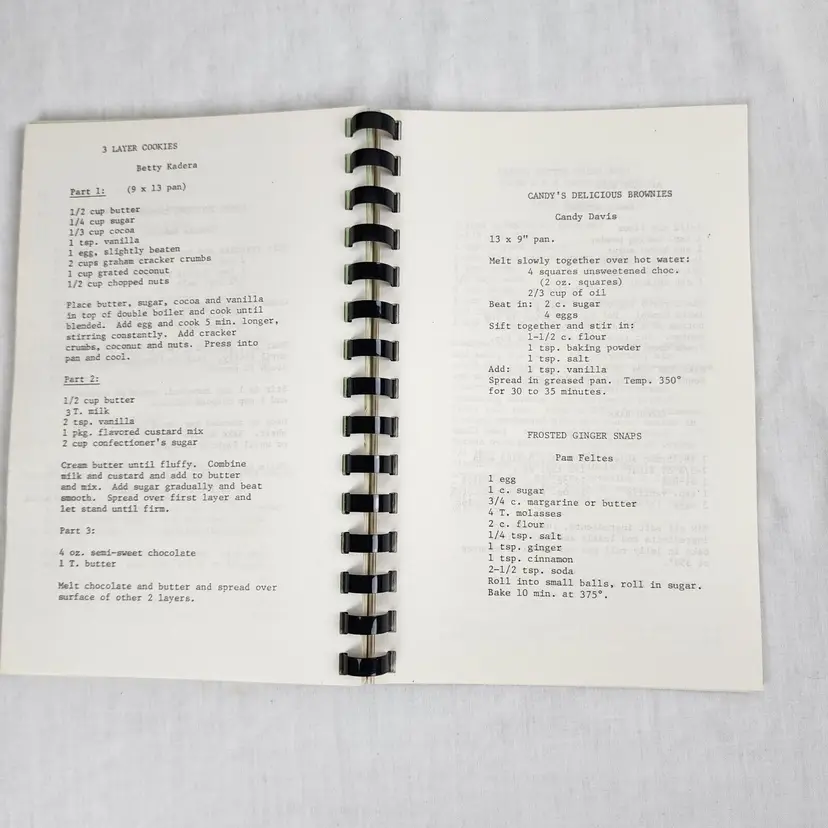 3 LAYER COOKIES
Betty Kadera
Part 1: (9 x 13 pan)
1/2 cup butter
1/4 cup sugar
1/3 cup cocoa
1 tsp. vanilla
1 egg, slightly beaten
2 cups graham cracker crumbs
1 cup grated coconut
1/2 cup chopped nuts
Place butter, sugar, cocoa and vanilla
in top of double boiler and cook until
blended. Add egg and cook 5 min. longer,
stirring constantly. Add cracker
crumbs, coconut and nuts. Press into
pan and cool.
Part 2:
1/2 cup butter
3 T. milk
2 tsp. vanilla
1 pkg. flavored custard mix
2 cup confectioner's sugar
Cream butter until fluffy. Combine
milk and custard and add to butter
and mix. Add sugar gradually and beat
smooth. Spread over first layer and
let stand until firm.
Part 3:
4 oz. semi-sweet chocolate
1 T. butter
Melt chocolate and butter and spread over
surface of other 2 layers.
CANDY'S DELICIOUS BROWNIES
Candy Davis
13 x 9" pan.
Melt slowly together over hot water:
4 squares unsweetened choc.
(2 oz. squares)
2/3 cup of oil
Beat in: 2 c. sugar
4 eggs
Sift together and stir in:
1-1/2 c. flour
1 tsp. baking powder
1 tsp. salt
Add: 1 tsp. vanilla
Spread in greased pan. Temp. 350°
for 30 to 35 minutes.
FROSTED GINGER SNAPS
Pam Feltes
1 egg
1 c. sugar
3/4 c. margarine or butter
4 T. molasses
2 c. flour
1/4 tsp. salt
1 tsp. ginger
1 tsp. cinnamon
2-1/2 tsp. soda
Roll into small balls, roll in sugar.
Bake 10 min. at 375°.